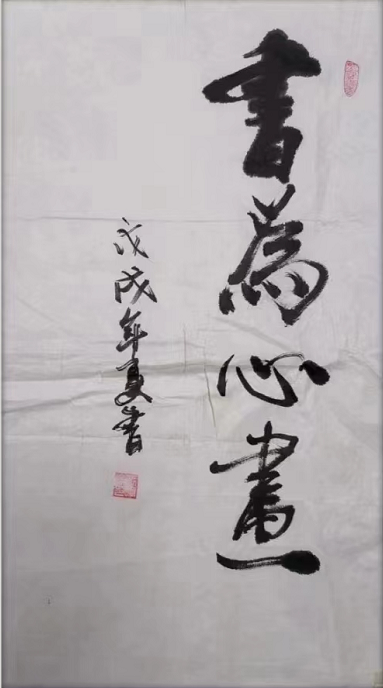 書為心畫
戊戌年夏書